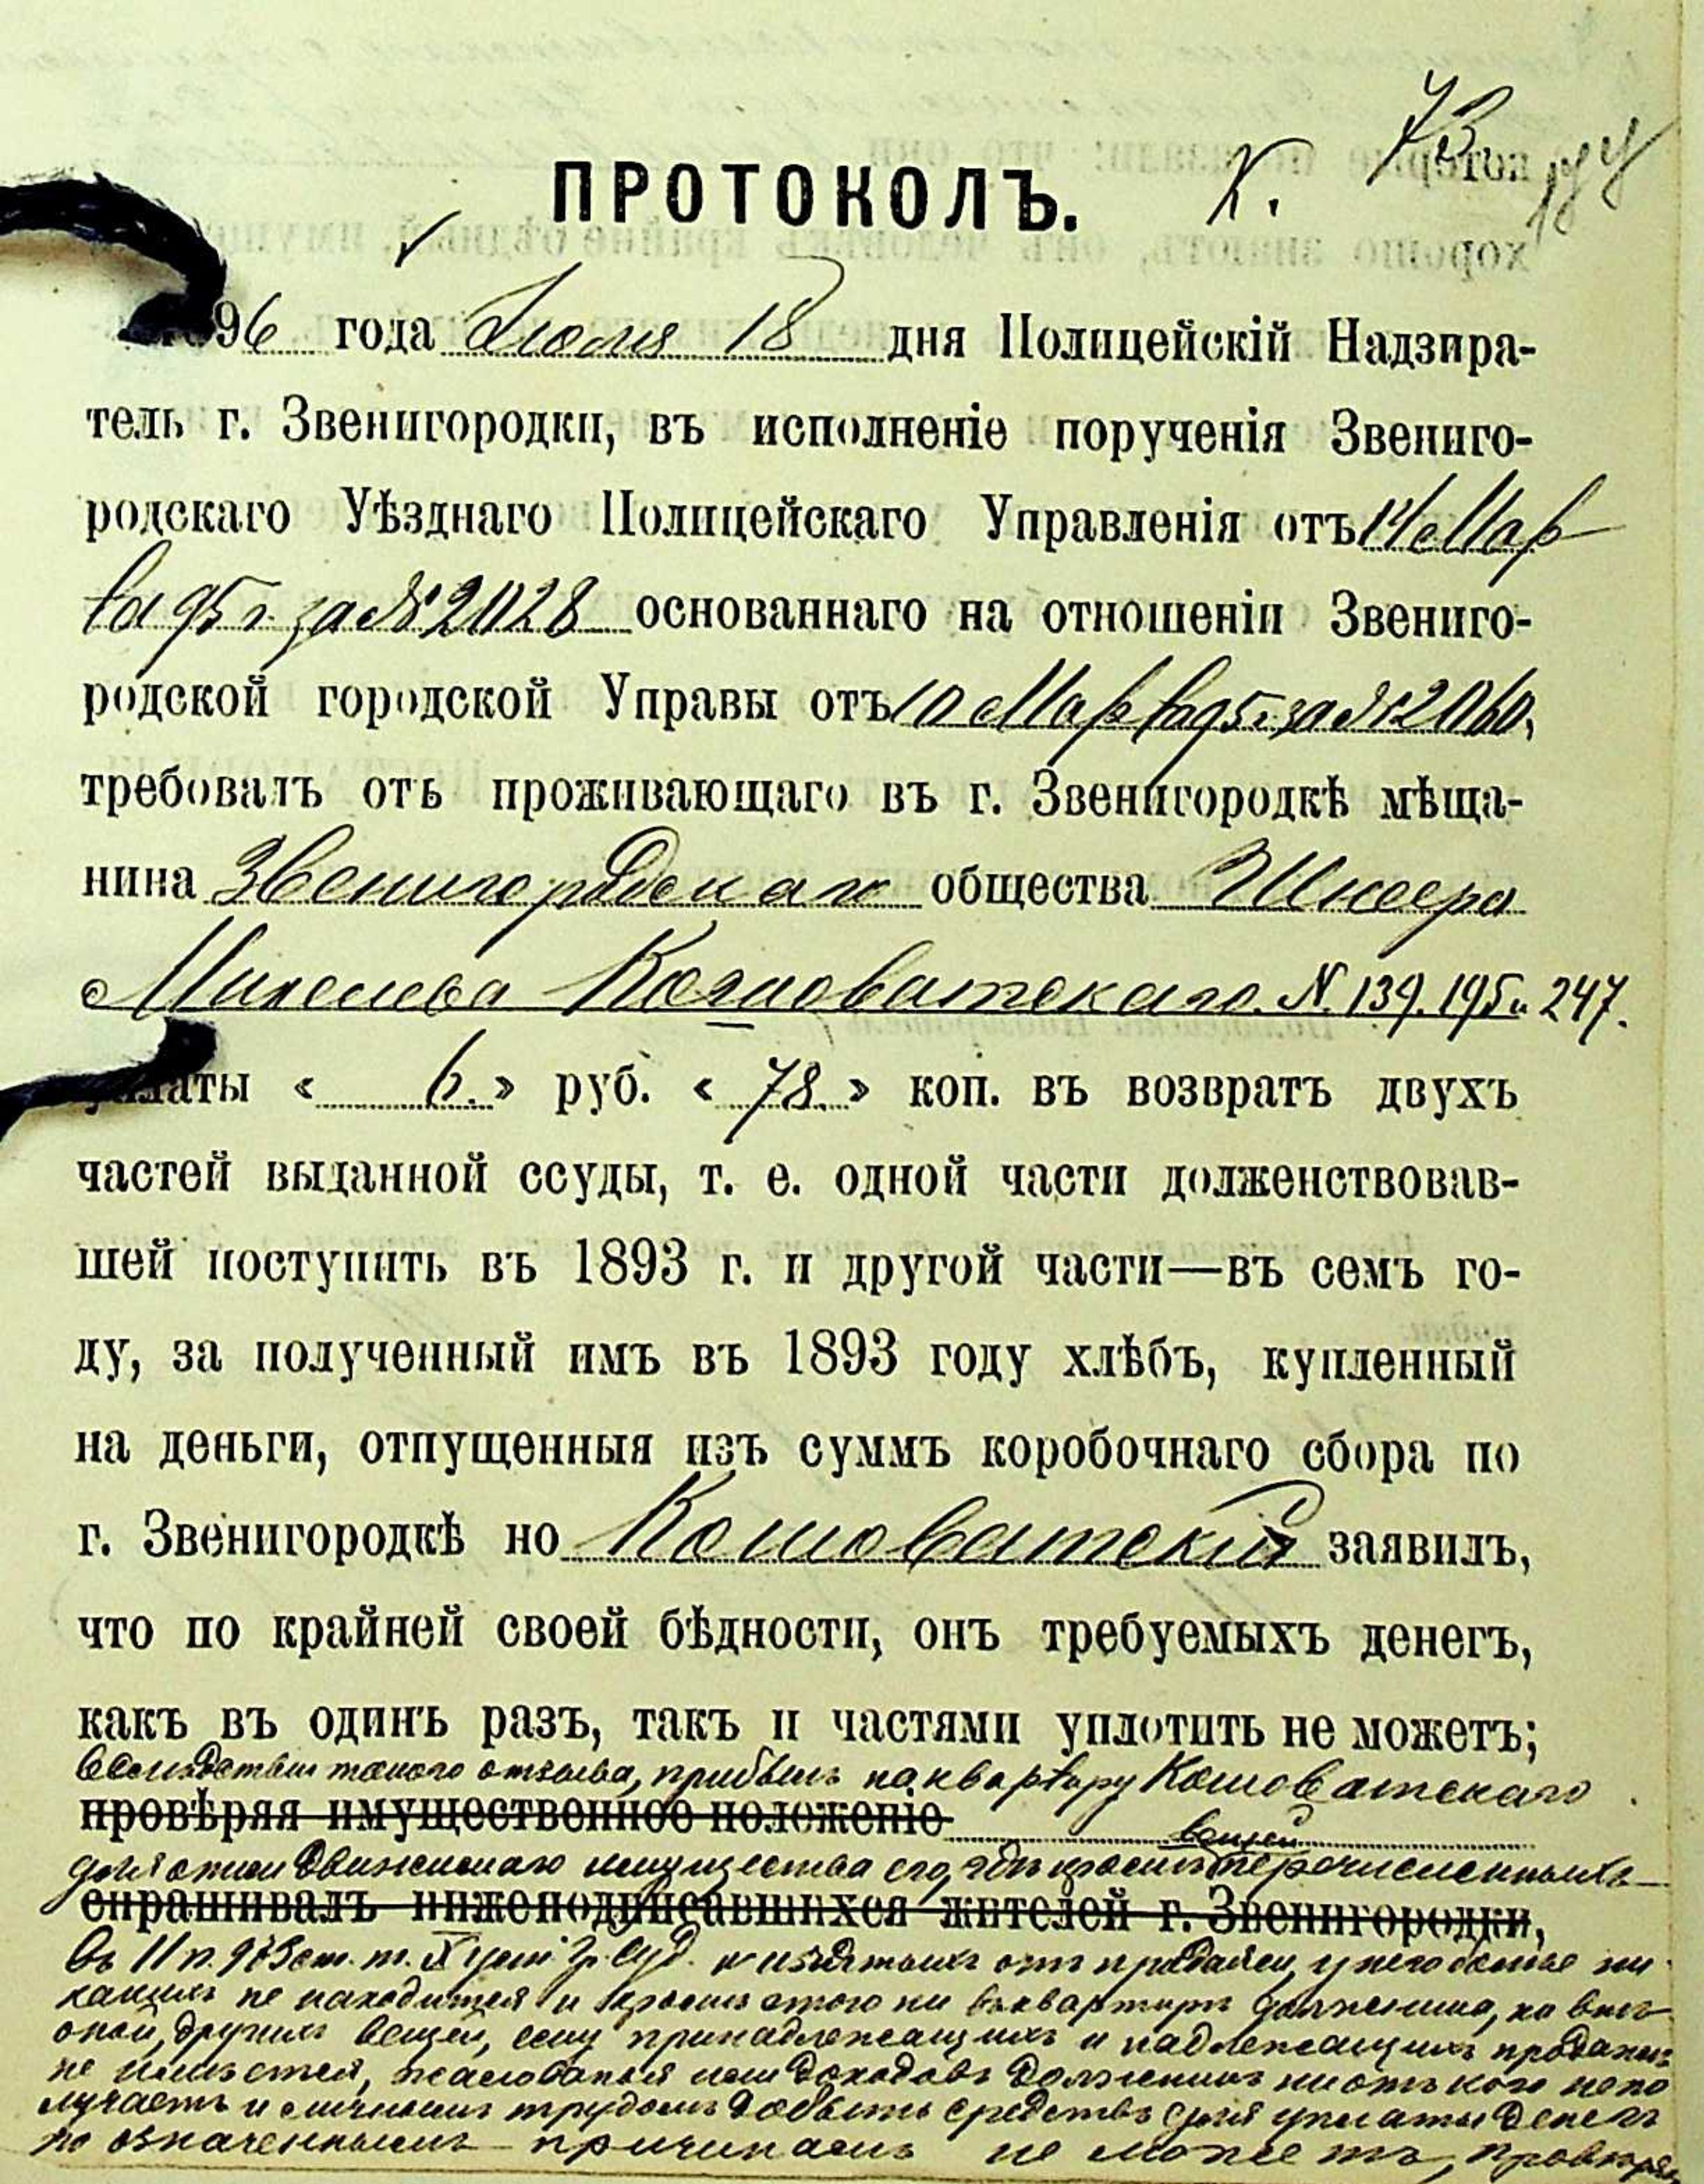 К. 73.
ПРОТОКОЛЪ.
96 года Іюля 18 дня Полицейскій Надзира-
тель г. Звенигородки, въ исполненіе порученія Звениго-
родскаго Уѣзднаго Полицейскаго Управленія отъ 14 Мар
та 95 г. за № 2028 основаннаго на отношеніи Звениго-
родской городской Управы отъ 10 Марта 95 г. за № 2060,
требовалъ отъ проживающаго въ г. Звенигородкѣ мѣща-
нина Звенигородскаго общества Шнеера
Михелева Кошоватскаго. N. 139. 195 и 247.
уплаты « 6. » руб. « 78. » коп. въ возвратъ двухъ
частей выданной ссуды, т. е. одной части долженствовав-
шей поступить въ 1893 г. и другой части—въ семъ го-
ду, за полученный имъ въ 1893 году хлѣбъ, купленный
на деньги, отпущенныя изъ суммъ коробочнаго сбора по
г. Звенигородкѣ но Кошоватскій заявилъ,
что по крайней своей бѣдности, онъ требуемыхъ денегъ,
какъ въ одинъ разъ, такъ и частями уплотить не можетъ;
вслѣдствіи такого отзыва, прибылъ на квартиру Кошоватскаго
провѣряя имущественное положеніе
вещей
для описи движимаго имущества его, гдѣ кромѣ перечисленныхъ
спрашивалъ нижеподписавшихся жителей г. Звенигородки,
въ II п. 973 ст. т. X уст. Гр. Суд. и изъятыхъ отъ продажи, у него болѣе ни
какихъ не находится и кромѣ этого ни въ квартирѣ должника, ко внѣ
оной, другихъ вещей, ему принадлежащихъ и надлежащихъ продажѣ
не имѣется, жалованья или доходовъ должникъ ни отъ кого не по
лучаетъ и личнымъ трудомъ добыть средствъ для уплаты денегъ
по означеннымъ причинамъ не можетъ, провѣряя